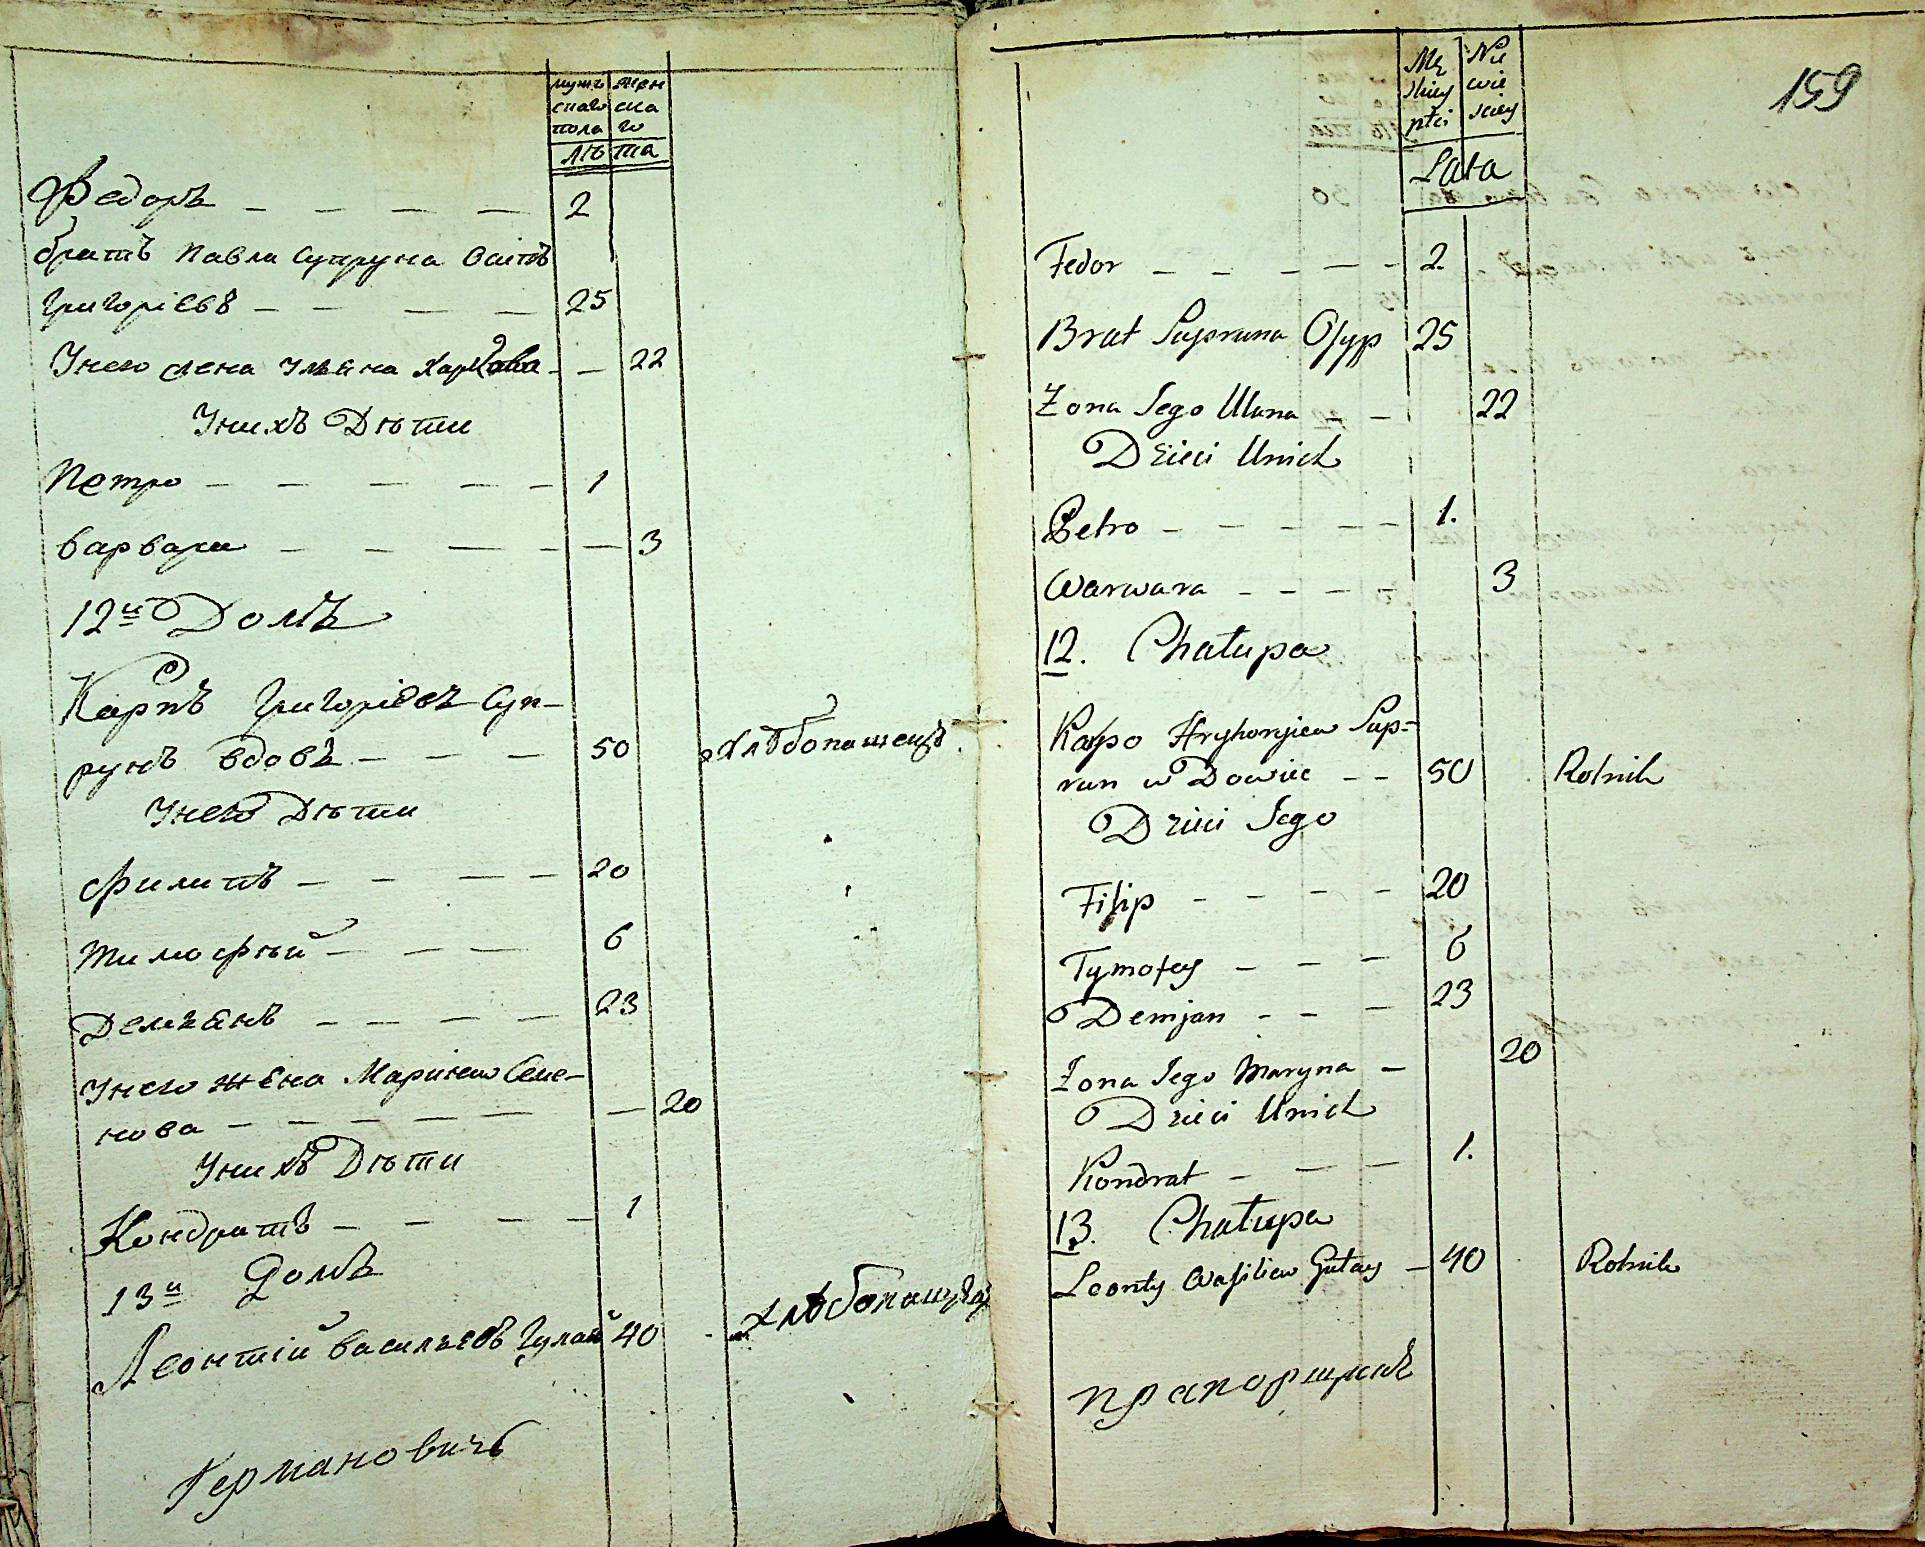 мужс жен
скаго ска
пола го
лѣта
Федоръ — — — — 2
братъ Павла Супруна Осипъ
Григоріевъ — — — — 25
Унего жена Ульяна — — 22
Унихъ Дѣти
Петро — — — — — 1
варвара — — — — — 3
12й Домъ
Карпъ Григоріевъ Суп-
рунъ вдовъ — — — 50 хлѣбопашецъ
Унего Дѣти
Филипъ — — — — 20
Тимофѣй — — — 6
Демьянъ — — — — 23
Унего жена Марина Семе-
нова — — — — — — 20
Унихъ Дѣти
Кондратъ — — — — 1
13й Домъ
Леонтій васильевъ Гулай 40 хлѣбопашецъ
Германовичъ
159
Mę Nie
skiey wie
płci sciey
Lata
Fedor — — — — — 2.
Brat Supruna Osyp 25
Zona Jego Ulana — — 22
Dzieci Unich
Petro — — — — — 1.
Warwara — — — — 3
12. Chałupa
Karpo Hryhoryiew Sup=
run wDowiec — — 50 Rolnik
Dzieci Jego
Filip — — — — 20
Tymofey — — — 6
Demjan — — — 23
Zona Jego Maryna — 20
Dzieci Unich
Kondrat — — — 1.
13. Chałupa
Leonty Wasiliew Gułay — 40 Rolnik
прапорщикъ